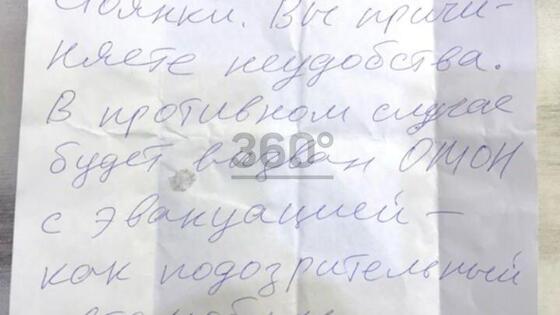 стоянки. Вы причи-
няете неудобства.
В противном случае
будет вызван ОМОН
360°
с эвакуацией –
как подозрительный